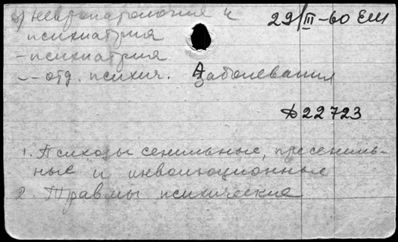 б) Невропатология и 29/III-60 ЕМ
психиатрия
- психиатрия
-- отд. психич. заболевания
Д22723
1. Психозы сенильные, пресениль-
ные и инволюционные
2. Травмы психические